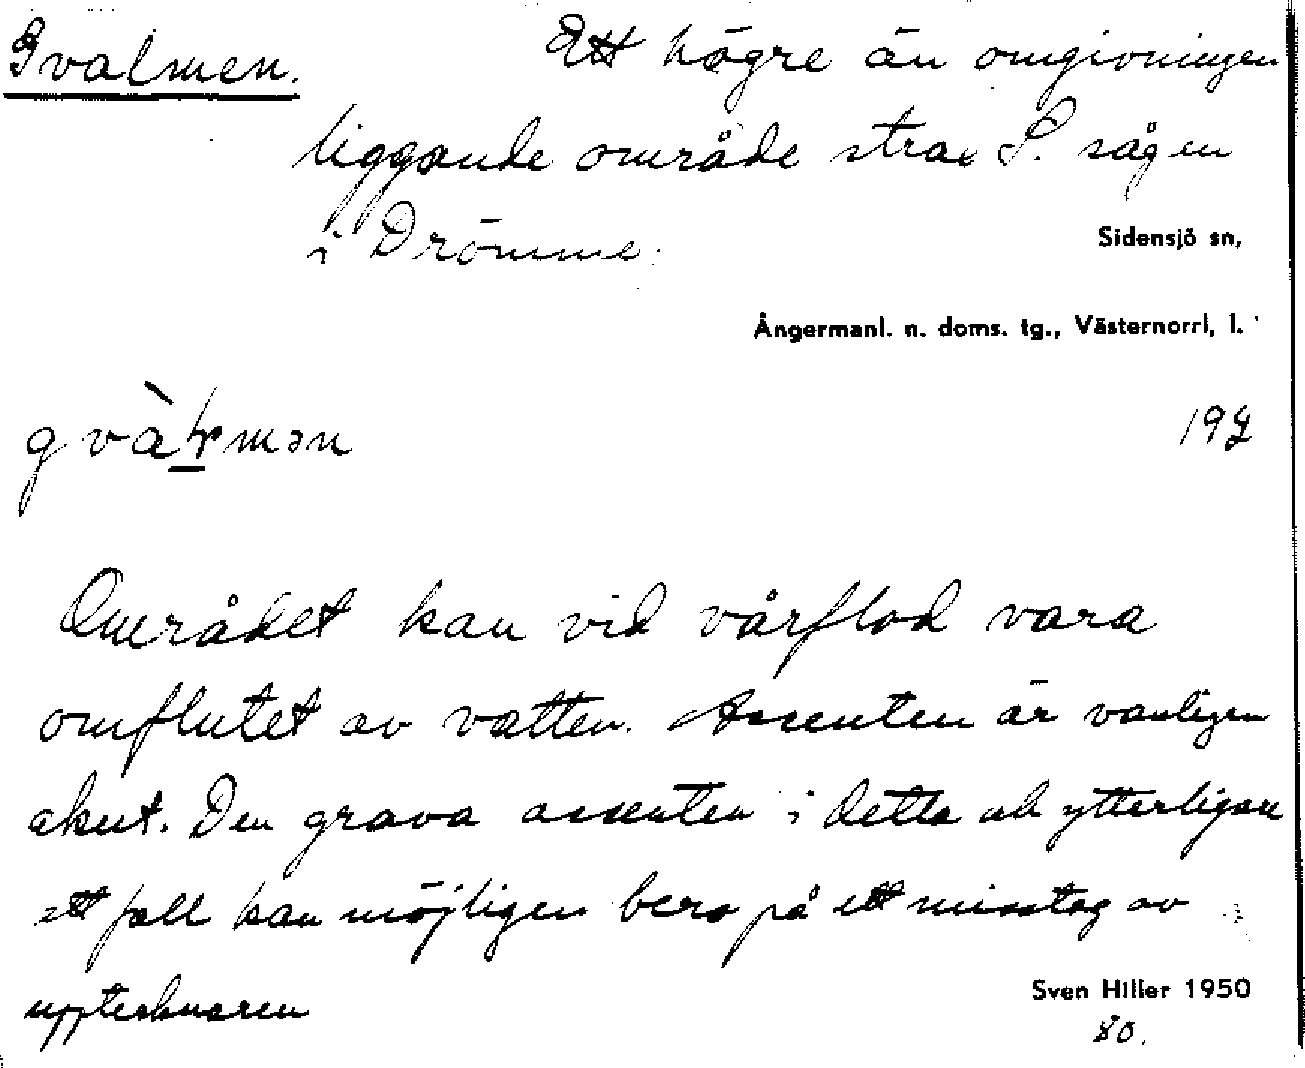 Gvalmen. Ett högre än omgivningen
liggande område strax S. sågen
i Drömme.
Sidensjö sn,
Ångermanl. n. doms. tg., Västernorrl, l.
gvàɽmən
Området kan vid vårflod vara
omflutet av vatten. Accenten är vanligen
akut. Den grava accenten i detta och ytterligare
ett fall kan möjligen bero på ett misstag av
upptecknaren
Sven Hiller 1950
80.